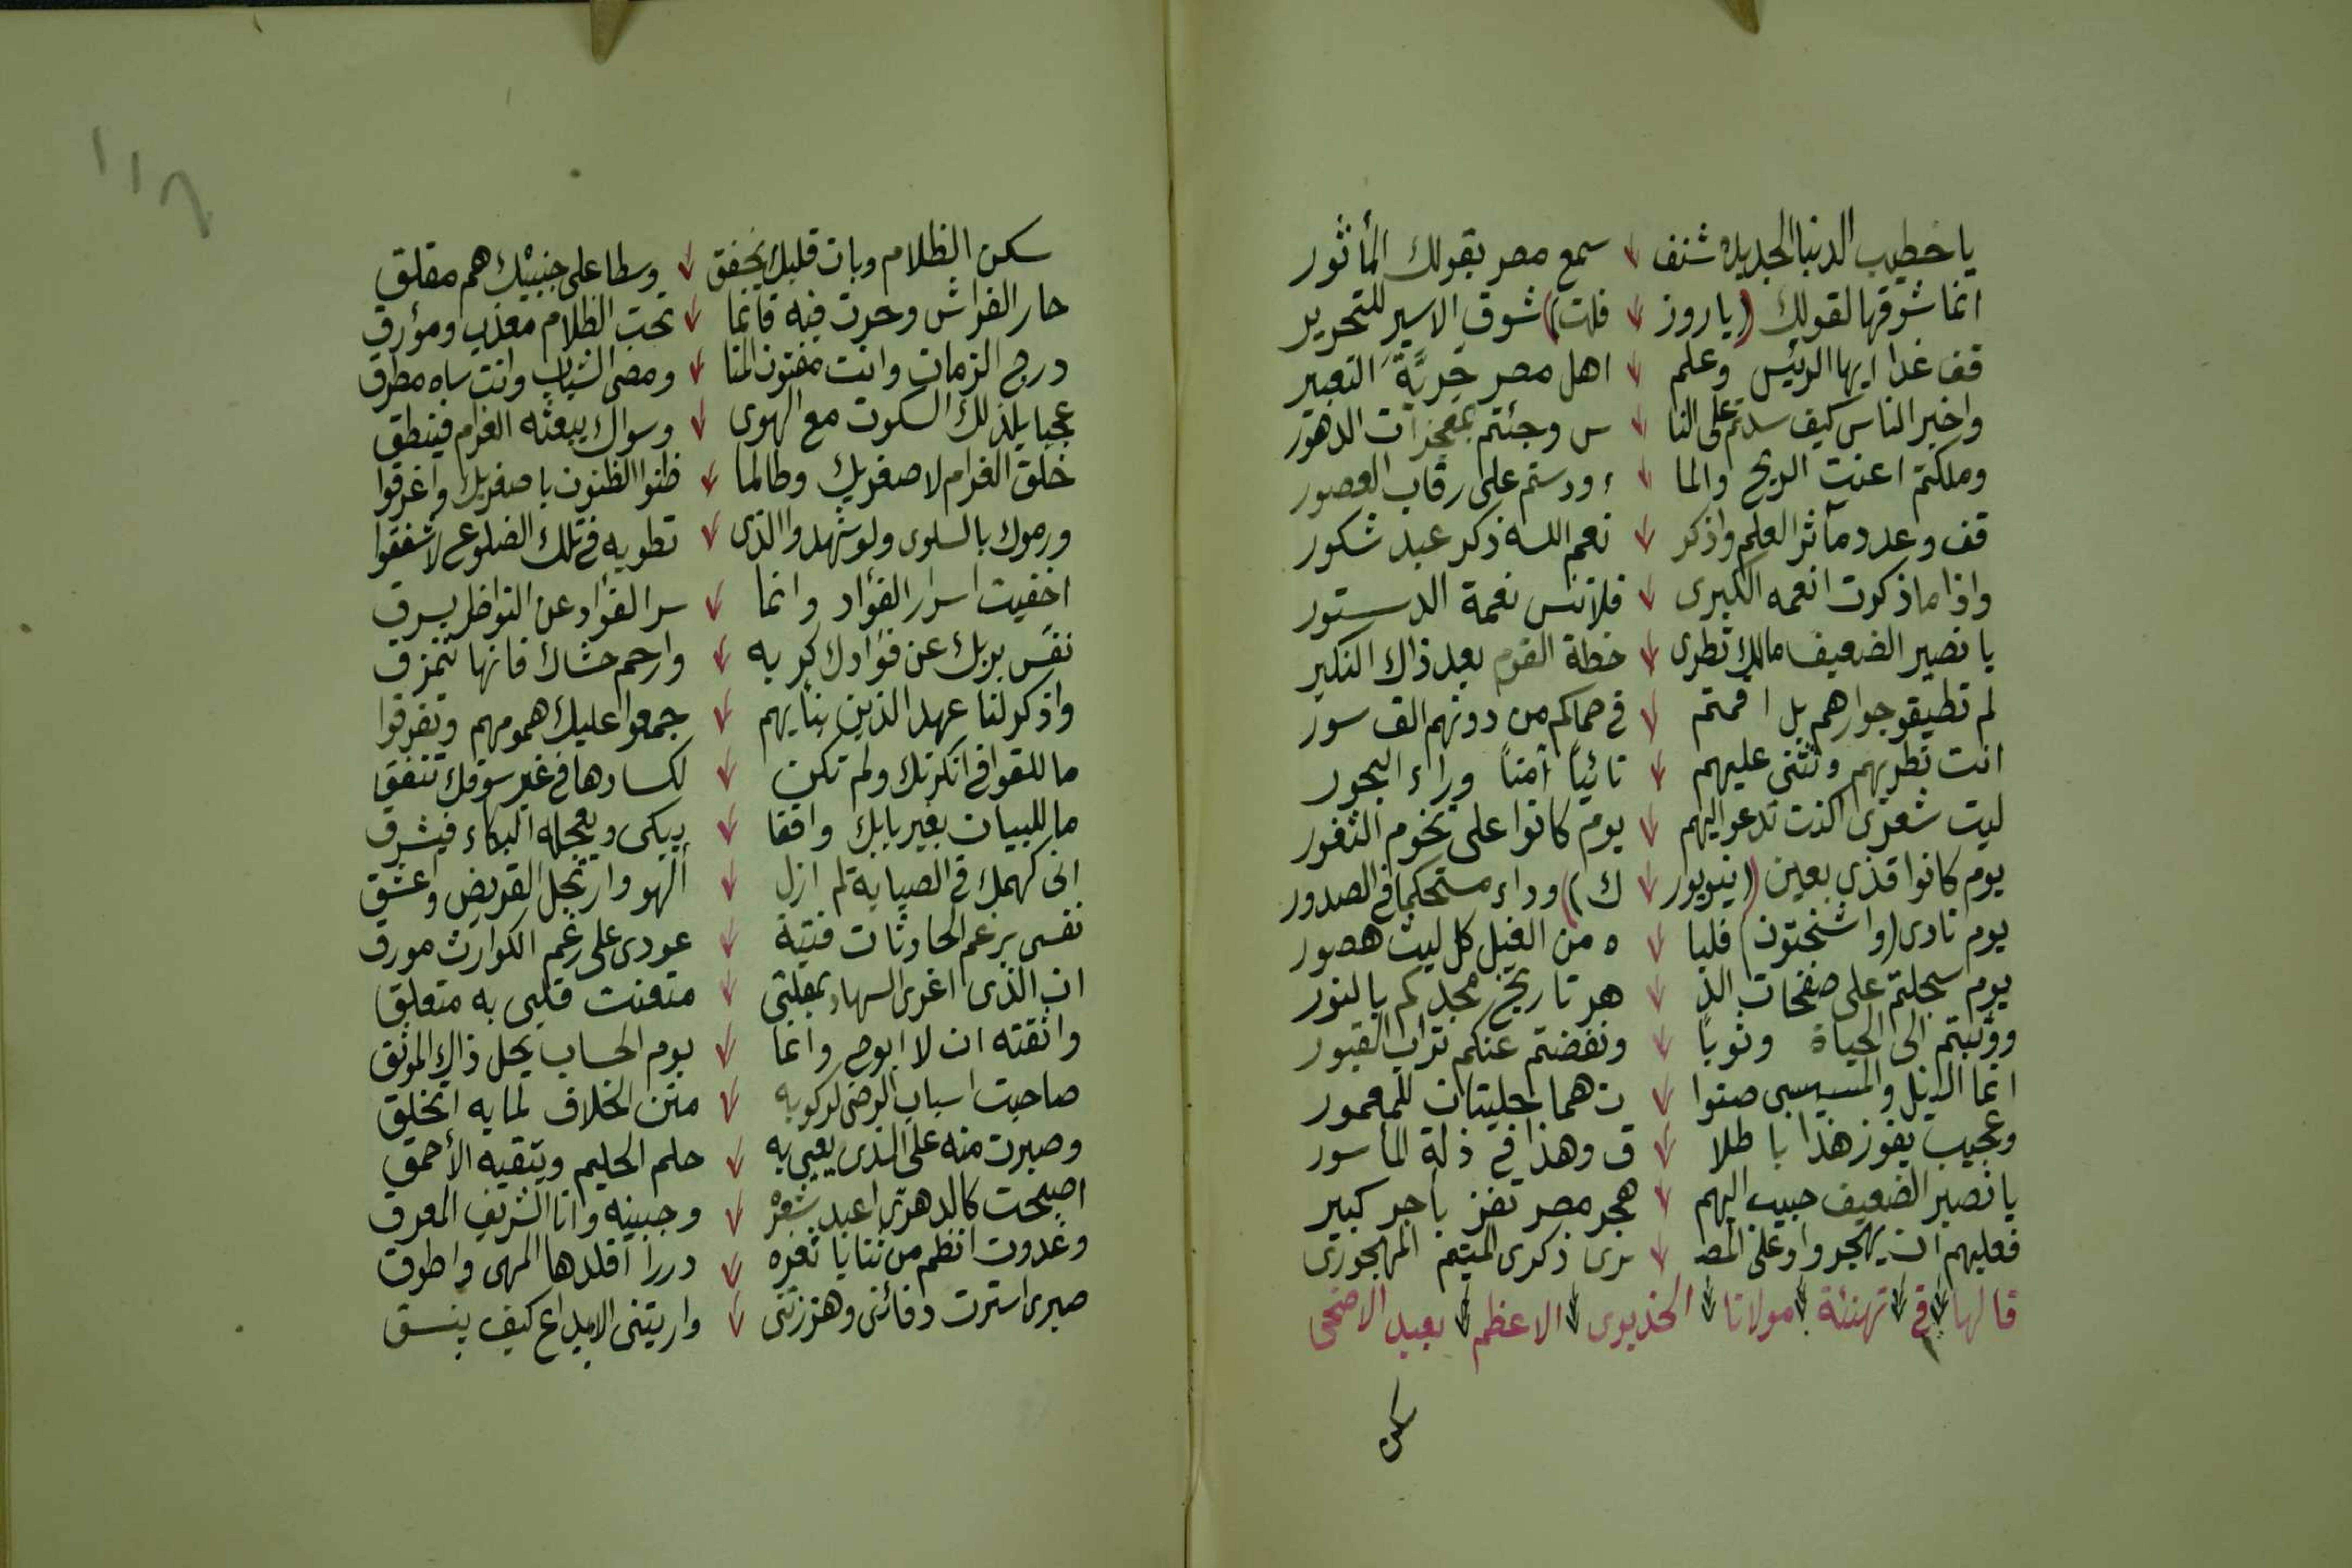 يا خطيب الدنيا الجديدة شنف سمع مصر بقولك المأثور
انما شوقها لقولك (يا روز فلت) شوق الاسير للتحرير
قف غدا ايها الرئيس وعلم اهل مصر حريَّة التعبير
واخبر الناس كيف سدتم على النا س وجئتم بمعجزات الدهور
وملكتم اعنت الريح والما ء ودستم على رقاب العصور
قف وعدد مآثر العلم واذكر نعم الله ذكر عبد شكور
واذا ما ذكرت انعمه الكبرى فلا تنس نعمة الدستور
يا نصير الضعيف مالك تطرى خطة القوم بعد ذاك النكير
لم تطيقو جوارهم بل اقمتم في حماكم من دونهم الف سور
انت تطريهم وتثنى عليهم نائياً آمناً وراء البحور
ليت شعرى اكنت تدعو اليهم يوم كانوا على تخوم الثغور
يوم كانوا قذى بعين (نيويور ك) وداء مستحكما في الصدور
يوم نادى (واشنجتون) فلبا ه من الغيل كل ليث هصور
يوم سجلتم على صفحات الد هر تاريخ مجدكم بالنور
ووثبتم الى الحياة وثوباً ونفضتم عنكم تراب القبور
انما النيل والمسيسبى صنوا ن هما حليتان للمعمور
وعجيب يفوز هذا باطلا ق وهذا في ذلة المأسور
يا نصير الضعيف حبب اليهم هجر مصر تفز باجر كبير
فعليهم ان يهجروا وعلى المصـ ـرى ذكرى المتيم المهجورى
قالها في تهنئة مولانا الخديوى الاعظم بعيد الاضحى
سكن
١١٢
سكن الظلام وبات قلبك يخفق وسطا على جنبيْك هم مقلق
حار الفراش وحرت فيه فانما تحت الظلام معذب ومؤرق
درج الزمان وانت مفتون المنا ومضى الشباب وانت ساه مطرق
عجبا يلذ لك السكوت مع الهوى وسواك يبعثه الغرام فينطق
خلق الغرام لاصغريك وطالما ظنوا الظنون باصغريك واغرقوا
ورموك بالسلوى ولو شهدوا الذى تطويه في تلك الضلوع لاشفقوا
اخفيت اسرار الفؤاد وانما سر الفؤاد عن النواظر يسرق
نفس بربك عن فؤادك كربه وارحم حشاك فانها تتمزق
واذكر لنا عهد الذين بنأيهم جمعوا عليك همومهم وتفرقوا
ما للقوافي انكرتك ولم تكن لكسادها في غير سوقك تنفق
ما للبيان بغير بابك واقفا يبكى ويعجله البكاء فيشرق
انى كهمك في الصبابة لم ازل ألهو وارتجل القريض واعشق
نفسى برغم الحادثات فتية عودى على رغم الكوارث مورق
ان الذى اغرى السهاد بمقلتى متعنت قلبى به متعلق
واثقته ان لا ابوح وانما يوم الحساب يحل ذاك الموثق
صاحبت اسباب الرضى لركوبه متن الخلاف لما به اتخلق
وصبرت منه على الذى يعيى به حلم الحليم ويتقيه الأحمق
اصبحت كالدهرى اعبد شعرْه وجبينه وانا الشريف المعرق
وغدوت انظم من ثنايا ثغره دررا اقلدها المهى واطوق
صبرى استرت دفائنى وهززتنى واريتنى الابداع كيف ينسق